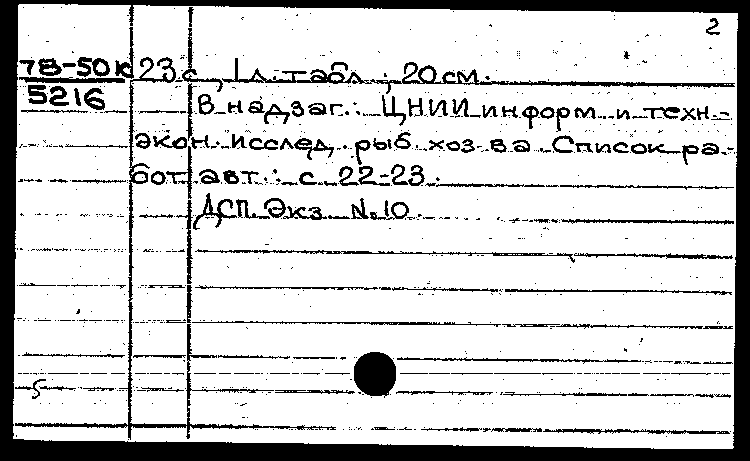 2
78-50к 23 с., 1 л. табл.; 20 см.
5216 В надзаг.: ЦНИИ информ. и техн.-
экон. исслед. рыб. хоз-ва. Список ра-
бот авт.: с. 22-23.
ДСП. Экз. №10.
5